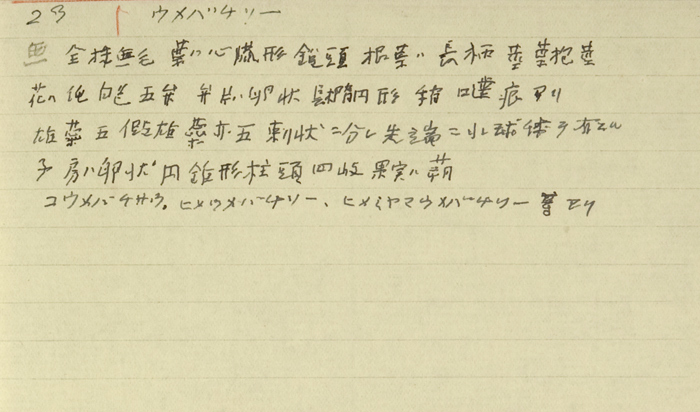 23 ウメバチソー
全株無毛 葉ハ心臓形 鈍頭 根葉ハ長柄 莖葉抱莖
花ハ純白色 五弁 弁片ハ卵状楕円形
雄蕋五 假雄蕋亦五 刺状ニ分レ先端ニ小球体ヲ有スル
子房ハ卵状円錐形柱頭四岐果実ハ蒴
コウメバチサウ、ヒメウメバチソー、ヒメミヤマウメバチソー 等アリ